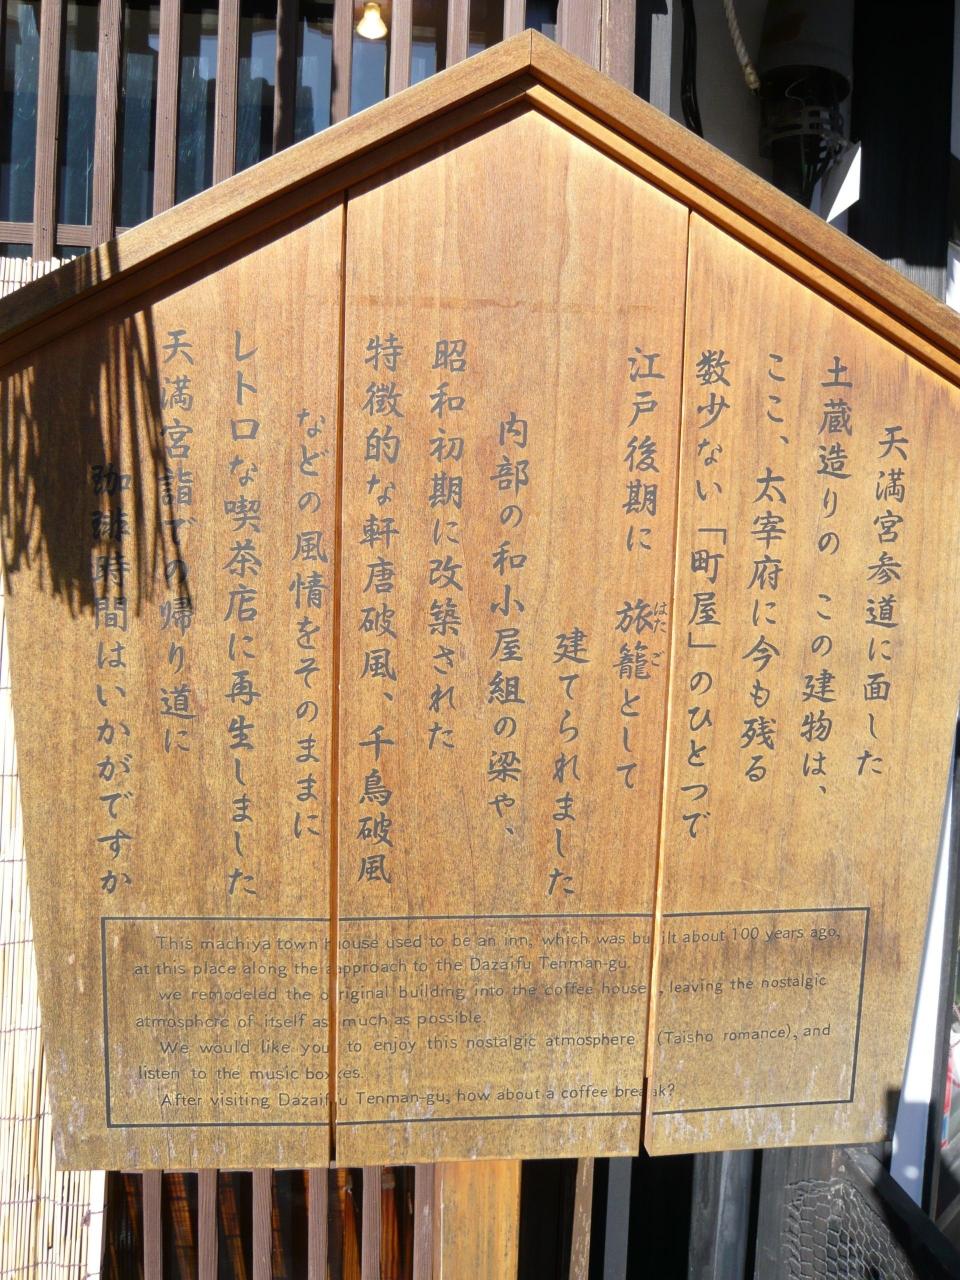 天満宮参道に面した
土蔵造りの この建物は、
ここ、太宰府に今も残る
数少ない「町屋」のひとつで
江戸後期に 旅籠として
はたご
建てられました
内部の和小屋組の梁や、
昭和初期に改築された
特徴的な軒唐破風、千鳥破風
などの風情をそのままに
レトロな喫茶店に再生しました
天満宮詣での帰り道に
珈琲時間はいかがですか
This machiya town house used to be an inn, which was built about 100 years ago,
at this place along the approach to the Dazaifu Tenman-gu.
we remodeled the original building into the coffee house, leaving the nostalgic
atmosphere of itself as much as possible.
We would like you to enjoy this nostalgic atmosphere (Taisho romance), and
listen to the music boxes.
After visiting Dazaifu Tenman-gu, how about a coffee break?